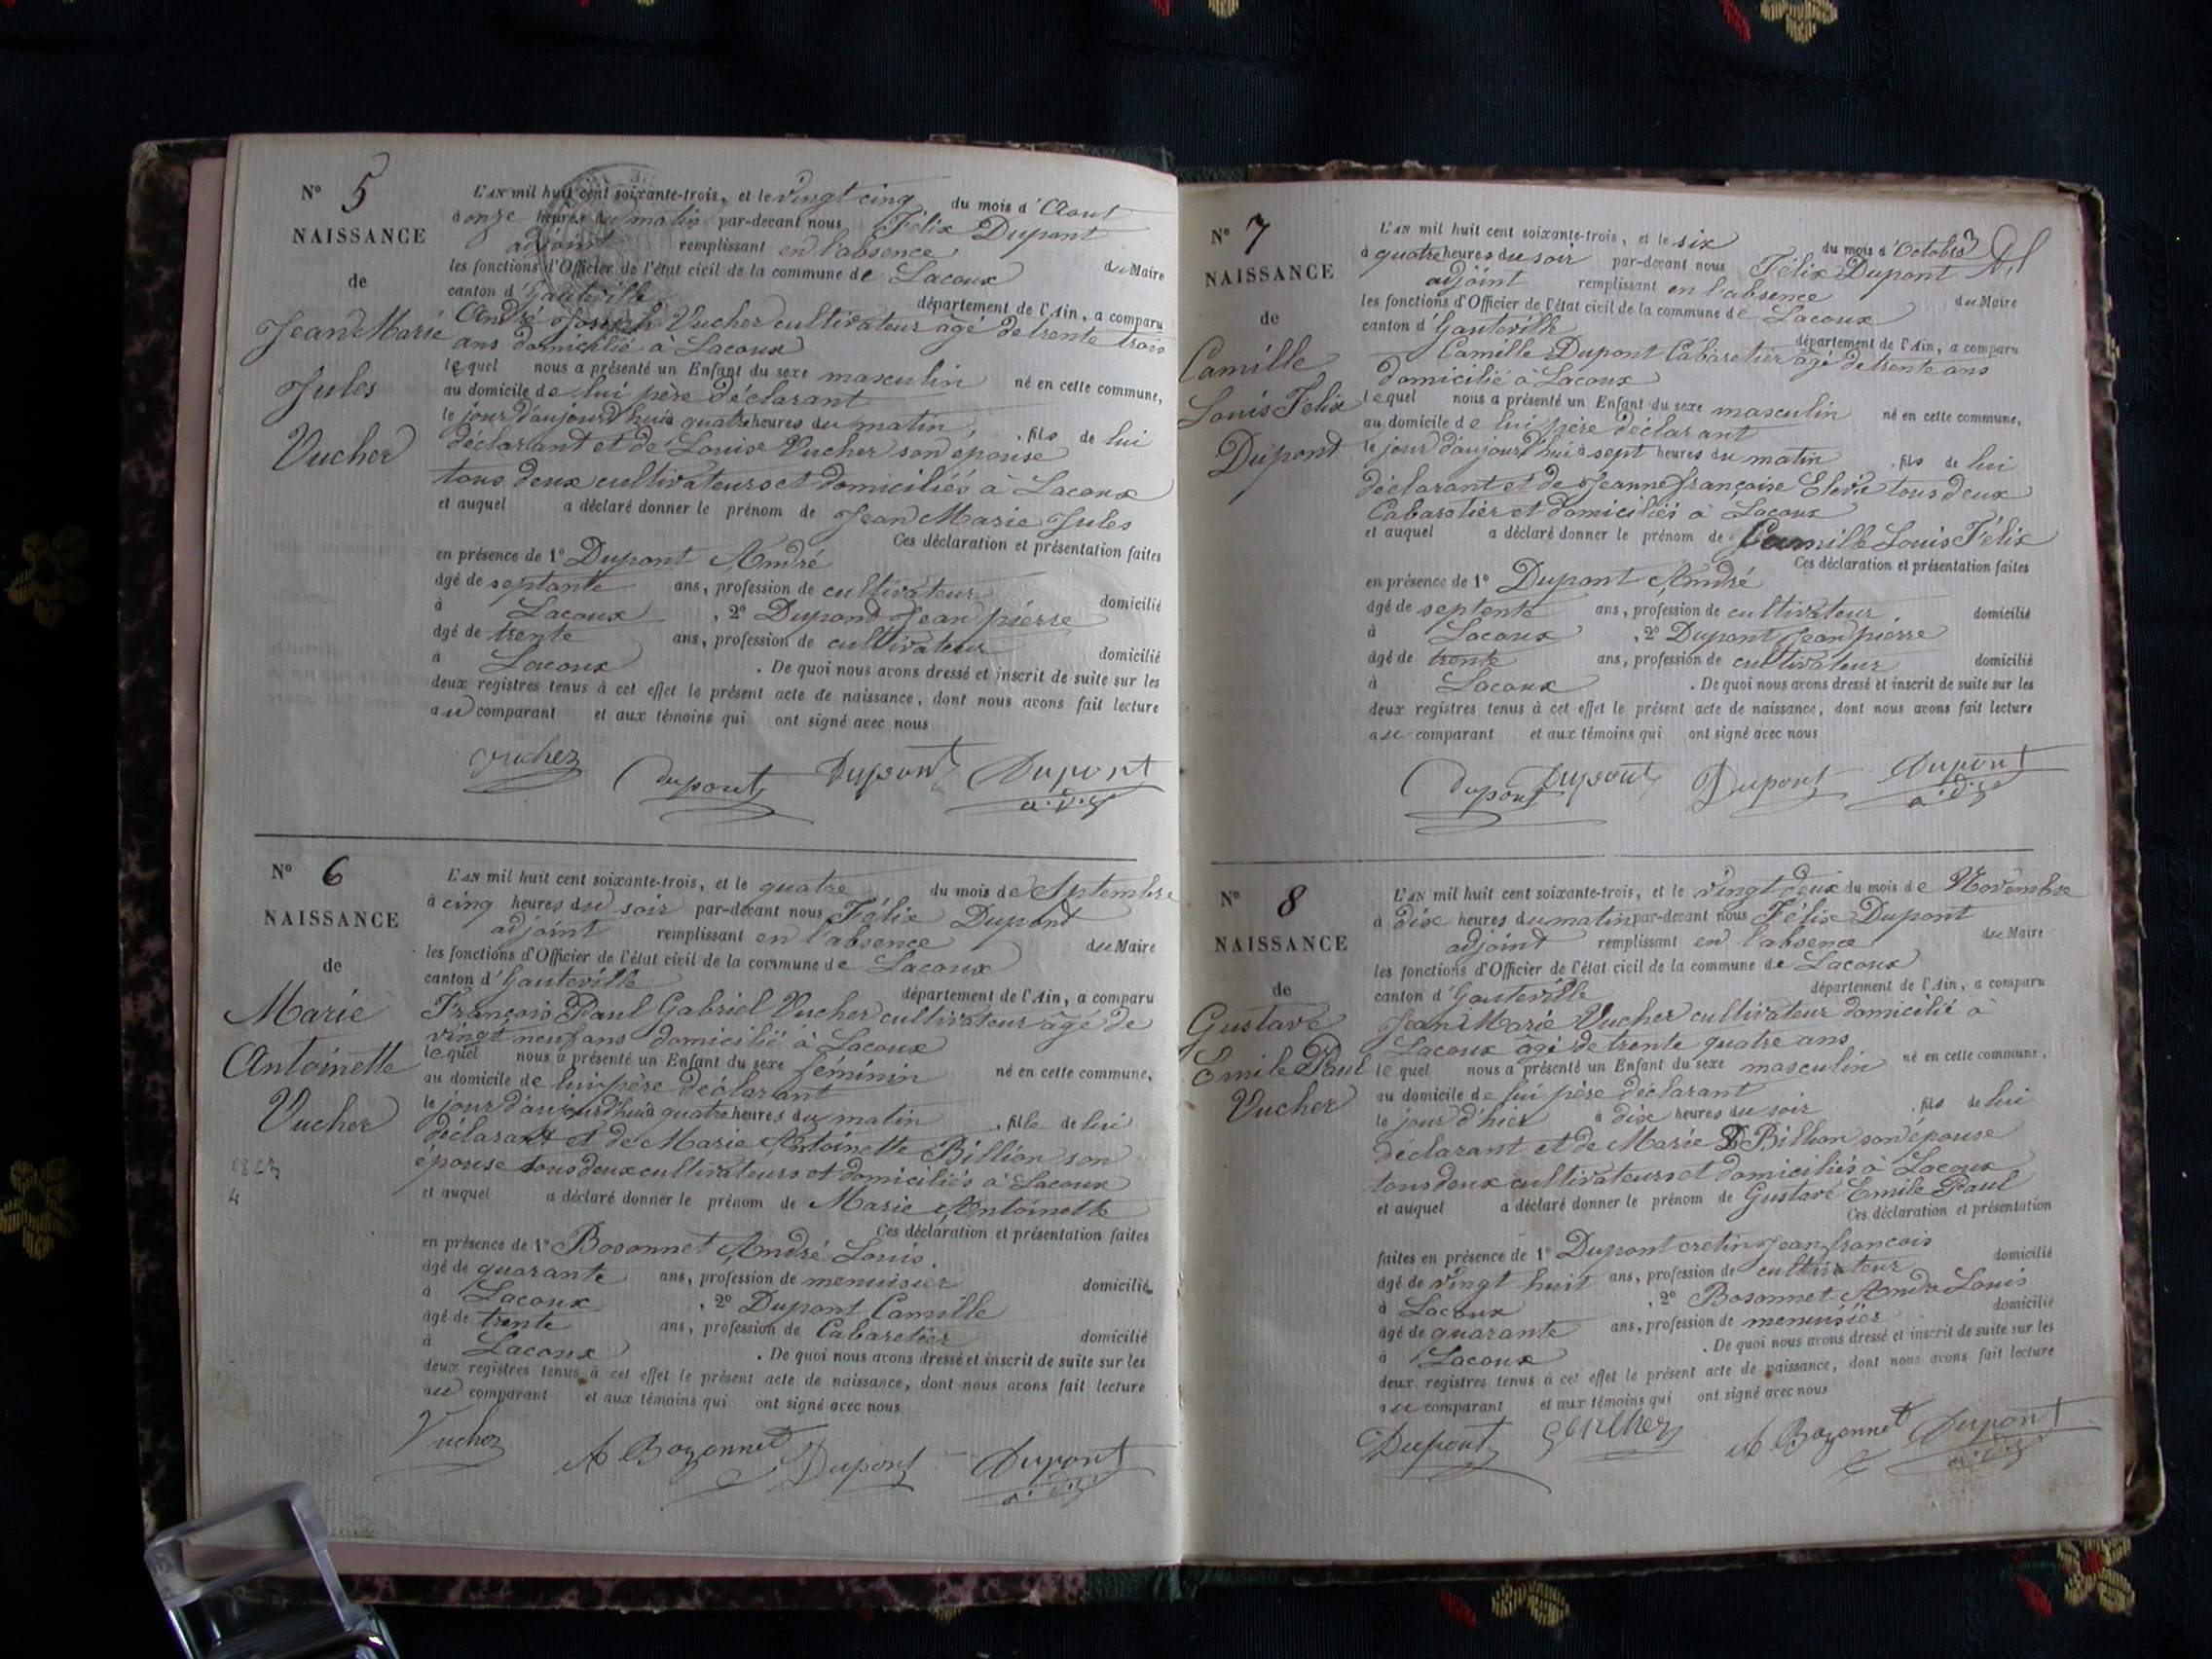 N° 5
NAISSANCE
de
Jean Marie
Jules
Vucher
L'AN mil huit cent soixante-trois, et le vingt cinq du mois d'Aout
à onze heures du matin par-devant nous Félix Dupont
adjoint remplissant en l'absence du Maire
les fonctions d'Officier de l'état civil de la commune de Lacoux
canton d'hauteville département de l'Ain, a comparu
André Joseph Vucher cultivateur agé de trente trois
ans domicilié à Lacoux
lequel nous a présenté un Enfant du sexe masculin né en cette commune,
au domicile de lui père déclarant
le jour d'aujourd'hui à quatre heures du matin, , fils de lui
déclarant et de Louise Vucher son epouse
tous deux cultivateurs et domiciliés à Lacoux
et auquel a déclaré donner le prénom de Jean Marie Jules
Ces déclaration et présentation faites
en présence de 1° Dupont André
âgé de septante ans, profession de cultivateur domicilié
à Lacoux , 2° Dupond Jean pierre
âgé de trente ans, profession de cultivateur domicilié
à Lacoux . De quoi nous avons dressé et inscrit de suite sur les
deux registres tenus à cet effet le présent acte de naissance, dont nous avons fait lecture
au comparant et aux témoins qui ont signé avec nous
Vucher dupont Dupont Dupont
N° 6
NAISSANCE
de
Marie
Antoinette
Vucher
L'AN mil huit cent soixante-trois, et le quatre du mois de Septembre
à cinq heures du soir par-devant nous Félix Dupont
adjoint remplissant en l'absence du Maire
les fonctions d'Officier de l'état civil de la commune de Lacoux
canton d'hauteville département de l'Ain, a comparu
François Paul Gabriel Vucher cultivateur âgé de
vingt neuf ans domicilié à Lacoux
lequel nous a présenté un Enfant du sexe féminin né en cette commune,
au domicile de lui père déclarant
le jour d'aujourd'hui à quatre heures du matin , fille de lui
déclarant et de Marie Antoinette Billion son
épouse tous deux cultivateurs et domiciliés à Lacoux
et auquel a déclaré donner le prénom de Marie Antoinette
Ces déclaration et présentation faites
en présence de 1° Bosonnet André Louis
âgé de quarante ans, profession de menuisier domicilié
à Lacoux , 2° Dupont Camille
âgé de trente ans, profession de Cabaretier domicilié
à Lacoux . De quoi nous avons dressé et inscrit de suite sur les
deux registres tenus à cet effet le présent acte de naissance, dont nous avons fait lecture
au comparant et aux témoins qui ont signé avec nous
Vucher A Bozonnet Dupont Dupont
N° 7
NAISSANCE
de
Camille
Louis Felix
Dupont
L'AN mil huit cent soixante-trois, et le six du mois d'Octobre
à quatre heures du soir par-devant nous Félix Dupont
adjoint remplissant en l'absence du Maire
les fonctions d'Officier de l'état civil de la commune de Lacoux
canton d'hauteville département de l'Ain, a comparu
Camille Dupont Cabaretier âgé de trente ans
domicilié à Lacoux
lequel nous a présenté un Enfant du sexe masculin né en cette commune,
au domicile de lui père déclarant
le jour d'aujourd'hui à sept heures du matin , fils de lui
déclarant et de Jeanne françoise tous deux
Cabaretier et domiciliés à Lacoux
et auquel a déclaré donner le prénom de Camille Louis Félix
Ces déclaration et présentation faites
en présence de 1° Dupont André
âgé de septente ans, profession de cultivateur domicilié
à Lacoux , 2° Dupont Jean pierre
âgé de trente ans, profession de cultivateur domicilié
à Lacoux . De quoi nous avons dressé et inscrit de suite sur les
deux registres tenus à cet effet le présent acte de naissance, dont nous avons fait lecture
au comparant et aux témoins qui ont signé avec nous
dupont Dupont Dupont Dupont
N° 8
NAISSANCE
de
Gustave
Emile Paul
Vucher
L'AN mil huit cent soixante-trois, et le vingt deux du mois de Novembre
à dix heures du matin par-devant nous Félix Dupont
adjoint remplissant en l'absence du Maire
les fonctions d'Officier de l'état civil de la commune de Lacoux
canton d'hauteville département de l'Ain, a comparu
Jean Marie Vucher cultivateur domicilié à
Lacoux âgé de trente quatre ans
lequel nous a présenté un Enfant du sexe masculin né en cette commune,
au domicile de lui père déclarant
le jour d'hier à dix heures du soir , fils de lui
déclarant et de Marie Billion son épouse
tous deux cultivateurs et domiciliés à Lacoux
et auquel a déclaré donner le prénom de Gustave Emile Paul
Ces déclaration et présentation
faites en présence de 1° Dupont cretin Jean françois
âgé de vingt huit ans, profession de cultivateur domicilié
à Lacoux , 2° Bosonnet André Louis
âgé de quarante ans, profession de menuisier domicilié
à Lacoux . De quoi nous avons dressé et inscrit de suite sur les
deux registres tenus à cet effet le présent acte de naissance, dont nous avons fait lecture
au comparant et aux témoins qui ont signé avec nous
Dupont A Bozonnet Dupont